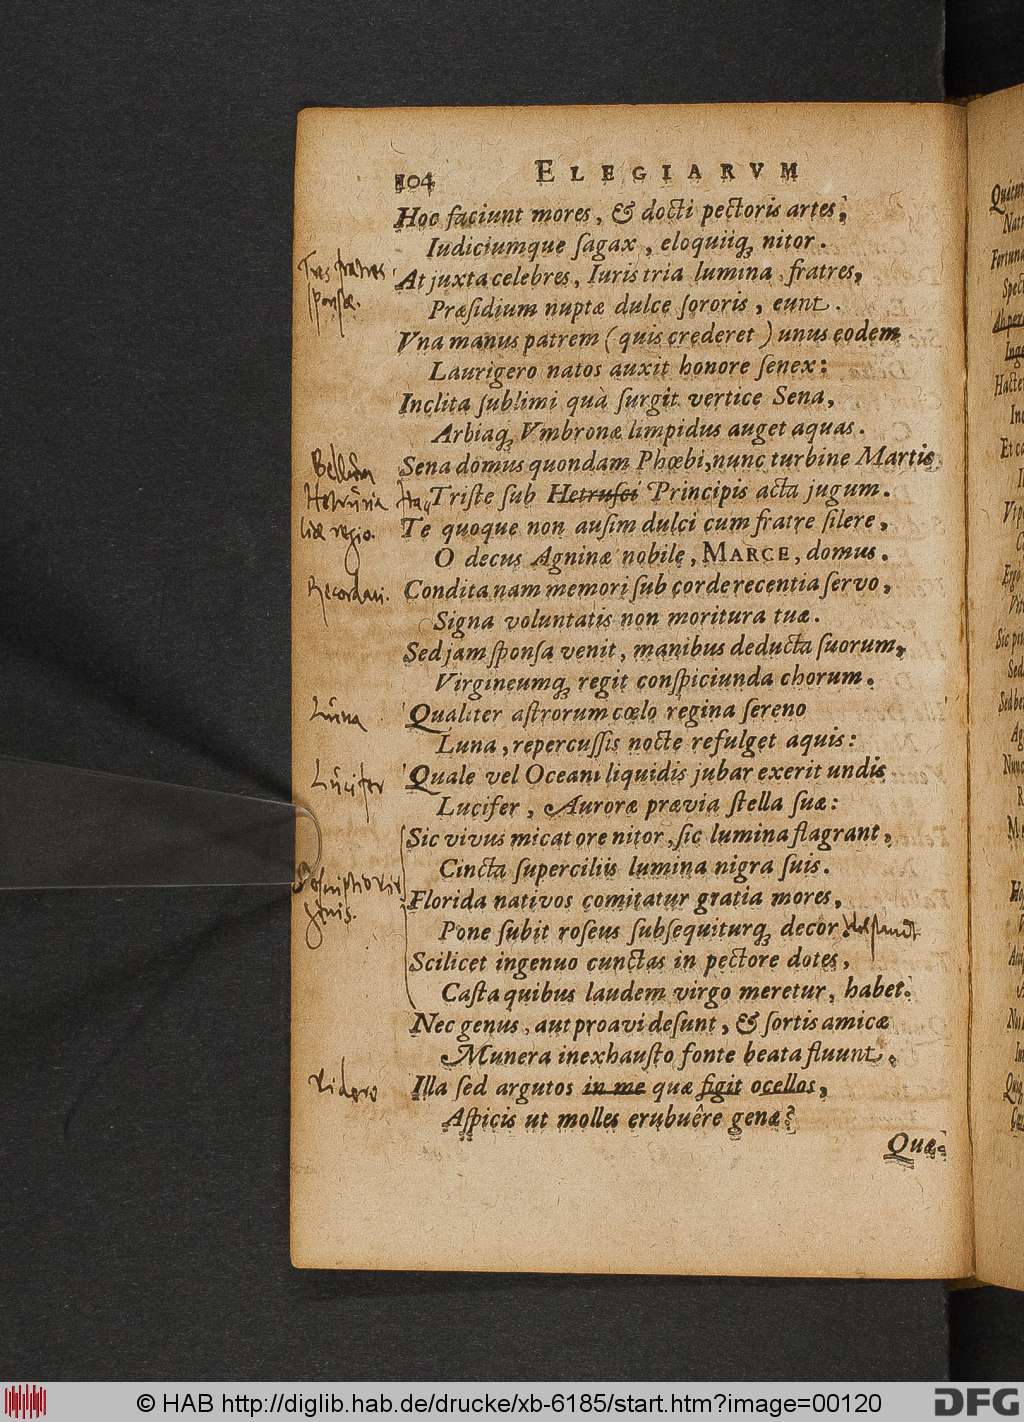 104 ELEGIARVM
Hoc faciunt mores, & docti pectoris artes,
Iudiciumque ſagax, eloquiiq; nitor.
Tres fratres
At juxta celebres, Iuris tria lumina, fratres,
ſponſæ.
Præſidium nuptæ dulce ſororis, eunt.
Vna manus patrem (quis crederet) unus eodem
Laurigero natos auxit honore ſenex:
Inclita ſublimi quà ſurgit vertice Sena,
Arbiaq; Vmbronæ limpidus auget aquas.
Bellum
Sena domus quondam Phœbi, nunc turbine Martis
Triſte ſub Hetruſci Principis acta jugum.
regio.
Te quoque non auſim dulci cum fratre ſilere,
O decus Agninæ nobile, MARCE, domus.
Recordari.
Condita nam memori ſub corde recentia ſervo,
Signa voluntatis non moritura tuæ.
Sed jam ſponſa venit, manibus deducta ſuorum,
Virgineumq; regit conſpiciunda chorum.
Luna
Qualiter aſtrorum cœlo regina ſereno
Luna, repercuſſis nocte refulget aquis:
Lucifer
Quale vel Oceani liquidis jubar exerit undis
Lucifer, Auroræ prævia ſtella ſuæ:
Sic vivus micat ore nitor, ſic lumina flagrant,
Cincta ſuperciliis lumina nigra ſuis.
Deſcriptio vir
Florida nativos comitatur gratia mores,
ginis.
Pone ſubit roſeus ſubſequiturq; decor.
Scilicet ingenuo cunctas in pectore dotes,
Caſta quibus laudem virgo meretur, habet.
Nec genus, aut proavi deſunt, & ſortis amicæ
Munera inexhauſto fonte beata fluunt.
Videro
Illa ſed argutos in me quæ figit ocellos,
Aſpicis ut molles erubuêre genæ?
Quæ
© HAB http://diglib.hab.de/drucke/xb-6185/start.htm?image=00120
DFG